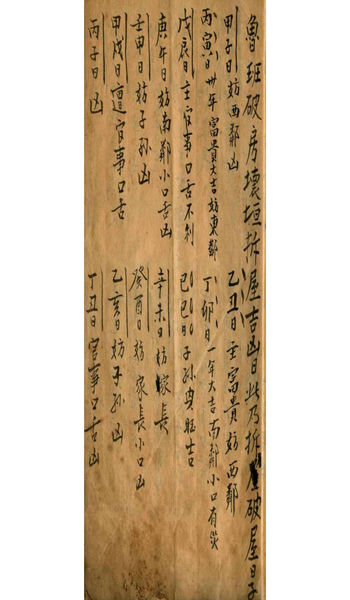 魯班破房壞垣拆屋吉凶日此乃拆屋破屋日子
甲子日妨西鄰凶 乙丑日主富貴妨西鄰
丙寅日卅年富貴大吉妨東鄰 丁卯日一年大吉南鄰小口有災
戊辰日主官事口舌不利 己巳日子孫興旺吉
庚午日妨南鄰小口舌凶 辛未日妨家長
壬申日妨子孫凶 癸酉日妨家長小口凶
甲戌日遭官事口舌 乙亥日妨子孫凶
丙子日凶 丁丑日官事口舌凶